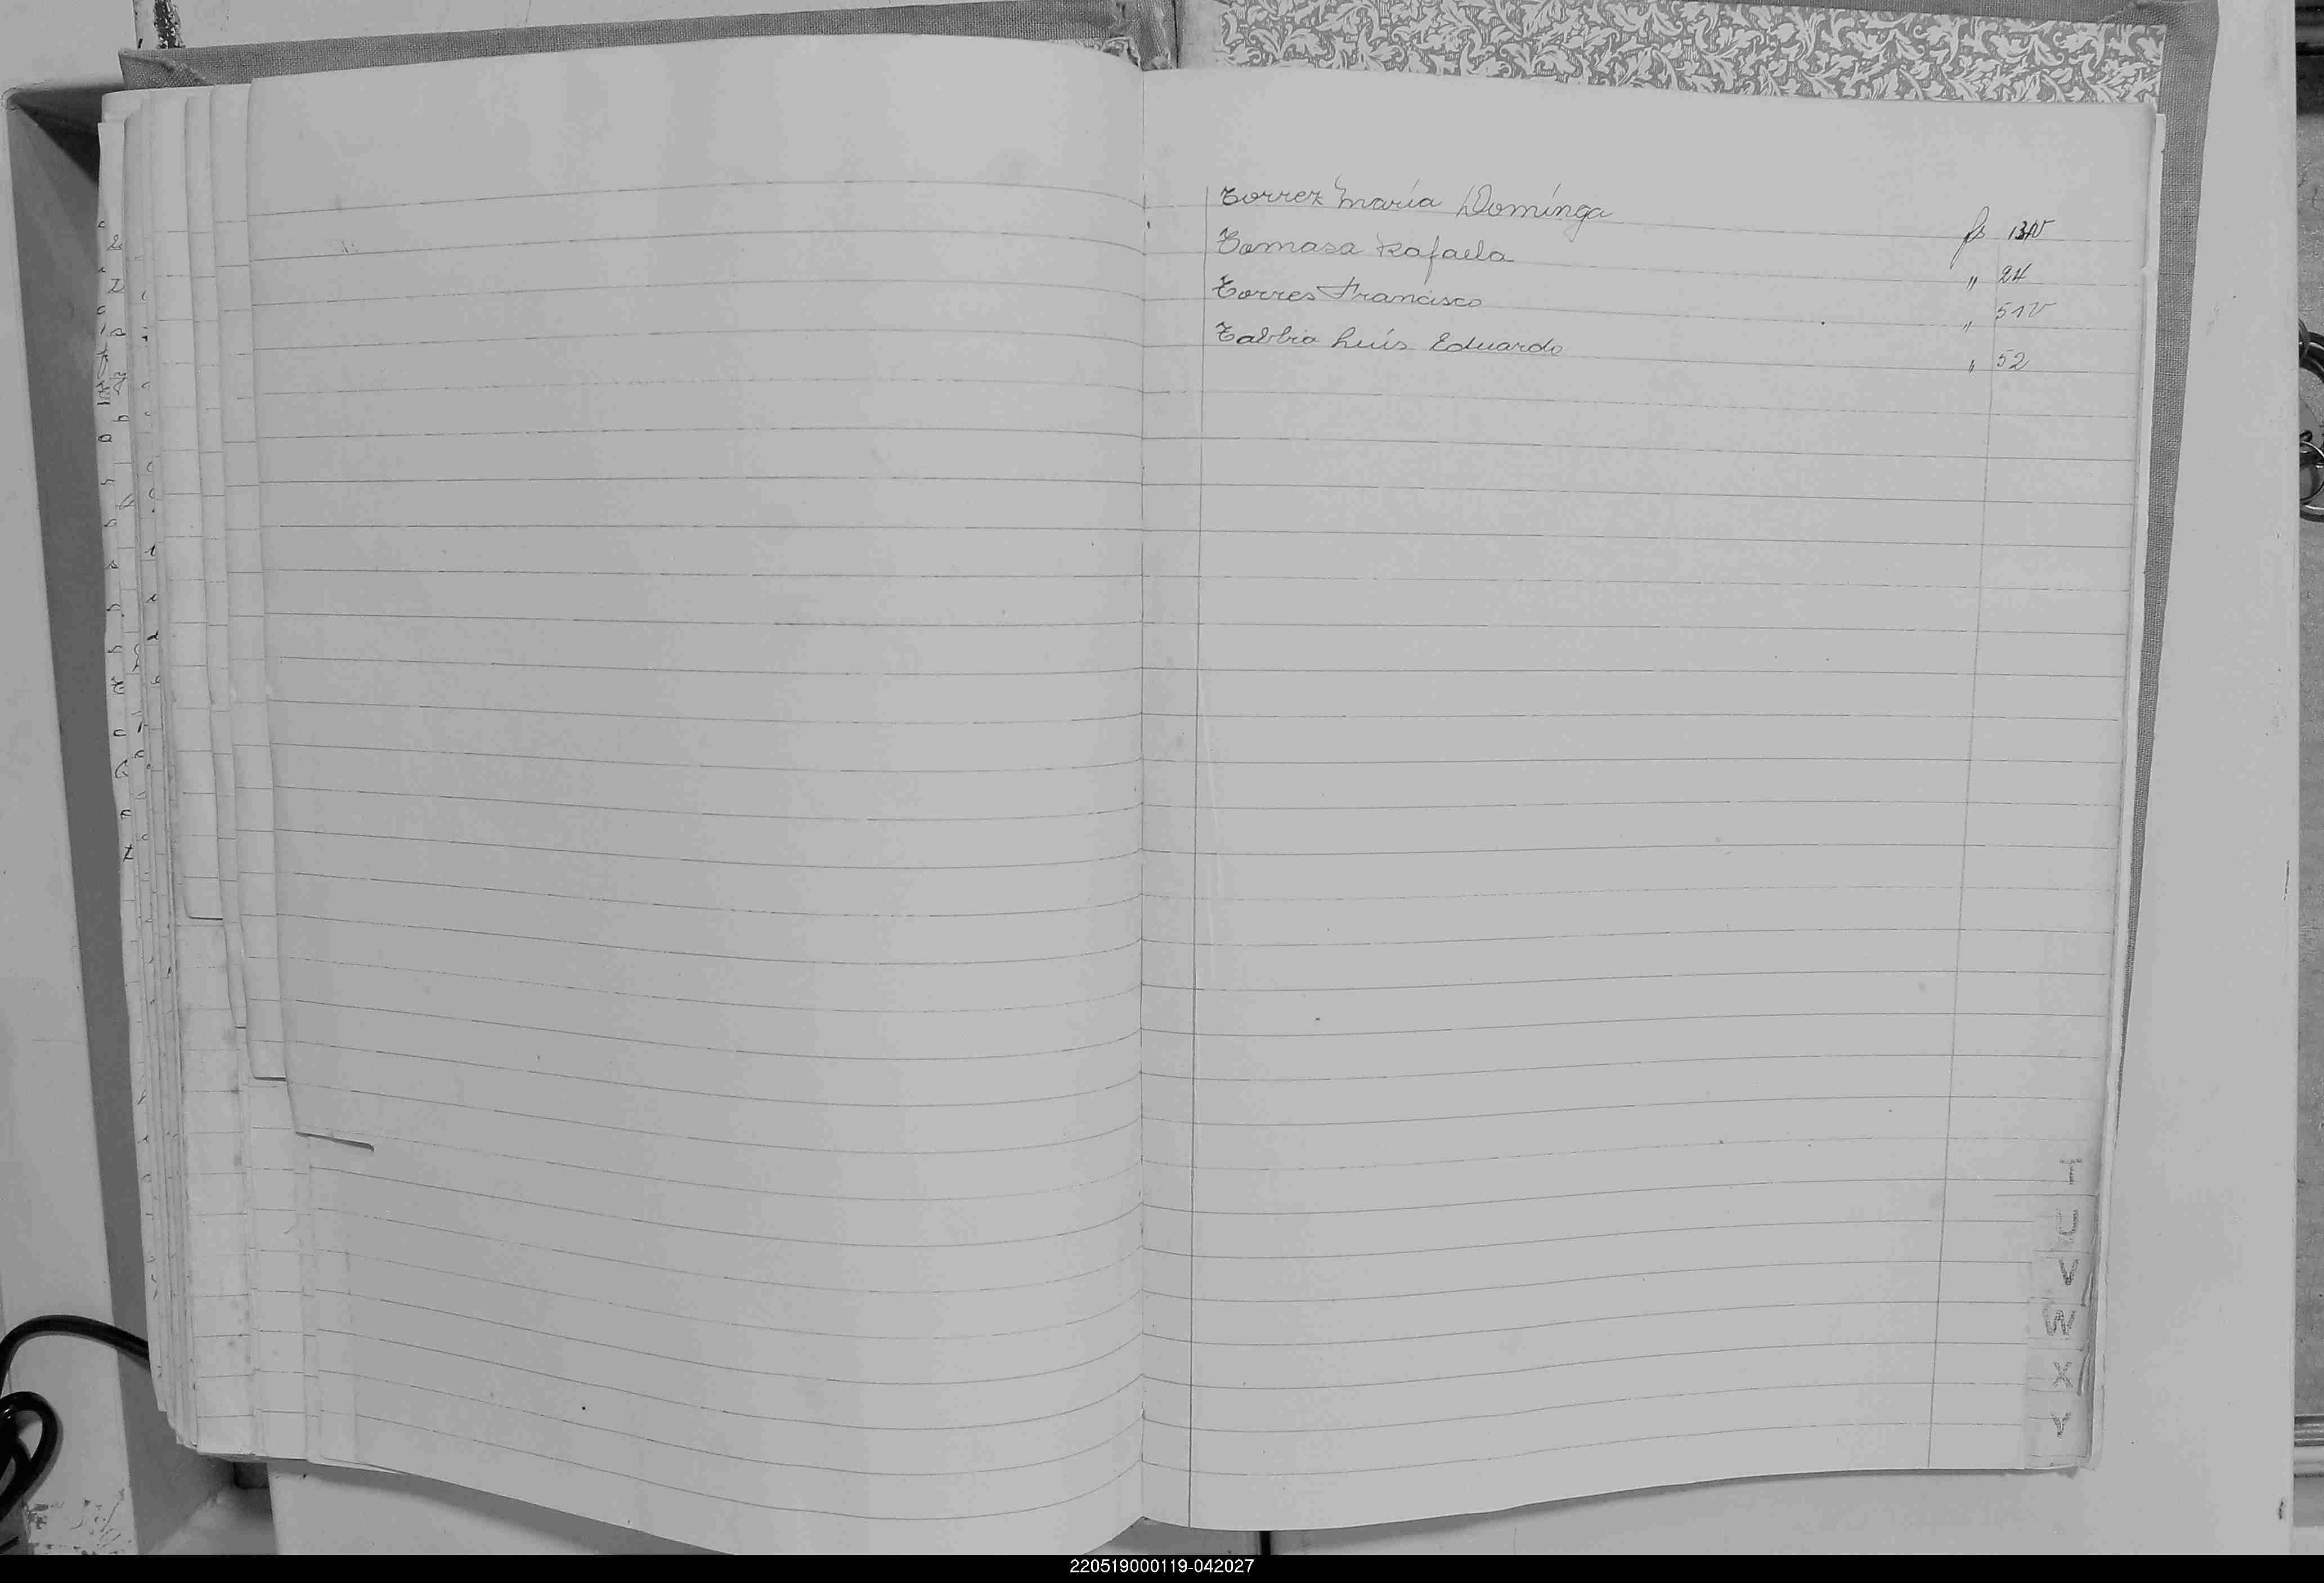 Torrez María Domínga fs 13V
Tomasa Rafaela " 24
Torres Francisco " 51V
Tabbia Luís Eduardo " 52
T
U
V
W
X
Y
220519000119-042027